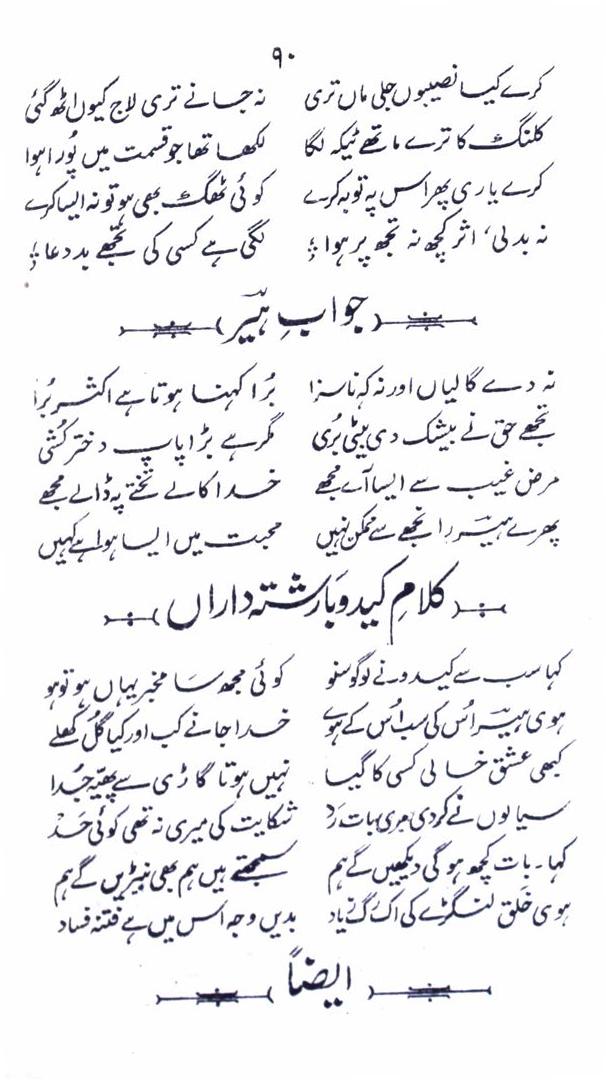 ۹۰
کرے کیا نصیبوں جلی ماں تری نہ جانے تری لاج کیوں اٹھ گئی
کلنگ کا ترے ماتھے ٹیکہ لگا لکھا تھا جو قسمت میں پُورا ہوا
کرے یاری پھر اس پہ توبہ کرے کوئی ٹھگ بھی ہو تو نہ ایسا کرے
نہ بدلی، اثر کچھ نہ تجھ پر ہوا لگی ہے کسی کی تجھے بد دعا
جوابِ ہیر
نہ دے گالیاں اور نہ کہ ناسزا بُرا کہنا ہوتا ہے اکثر بُرا
تجھے حق نے بیشک دی بیٹی بُری مگر ہے بڑا پاپ دختر کُشی
مرض غیب سے ایسا آے مجھے خدا کالے تختے پہ ڈالے مجھے
پھرے ہیر رانجھے سے ممکن نہیں محبت میں ایسا ہوا ہے کہیں
کلامِ کیدو بارشتہ داراں
کہا سب سے کیدو نے لوگو سنو کوئی مجھ سا مخبر یہاں ہو تو ہو
ہوی ہیر اُس کی سب اُس کے ہوے خدا جانے کب اور کیا گُل کھلے
کبھی عشق خالی کسی کا گیا نہیں ہوتا گاڑی سے پھیہ جُدا
سیالوں نے کردی مری بات رَد شکایت کی میری نہ تھی کوئی حَد
کہا۔ بات کچھ ہو گی دیکھیں گے ہم سمجھتے ہیں ہم بھی نبیڑیں گے ہم
ہوی خَلق لنگڑے کی اک رگ زیاد بدیں وجہ اس میں ہے فتنہ فساد
ایضاً